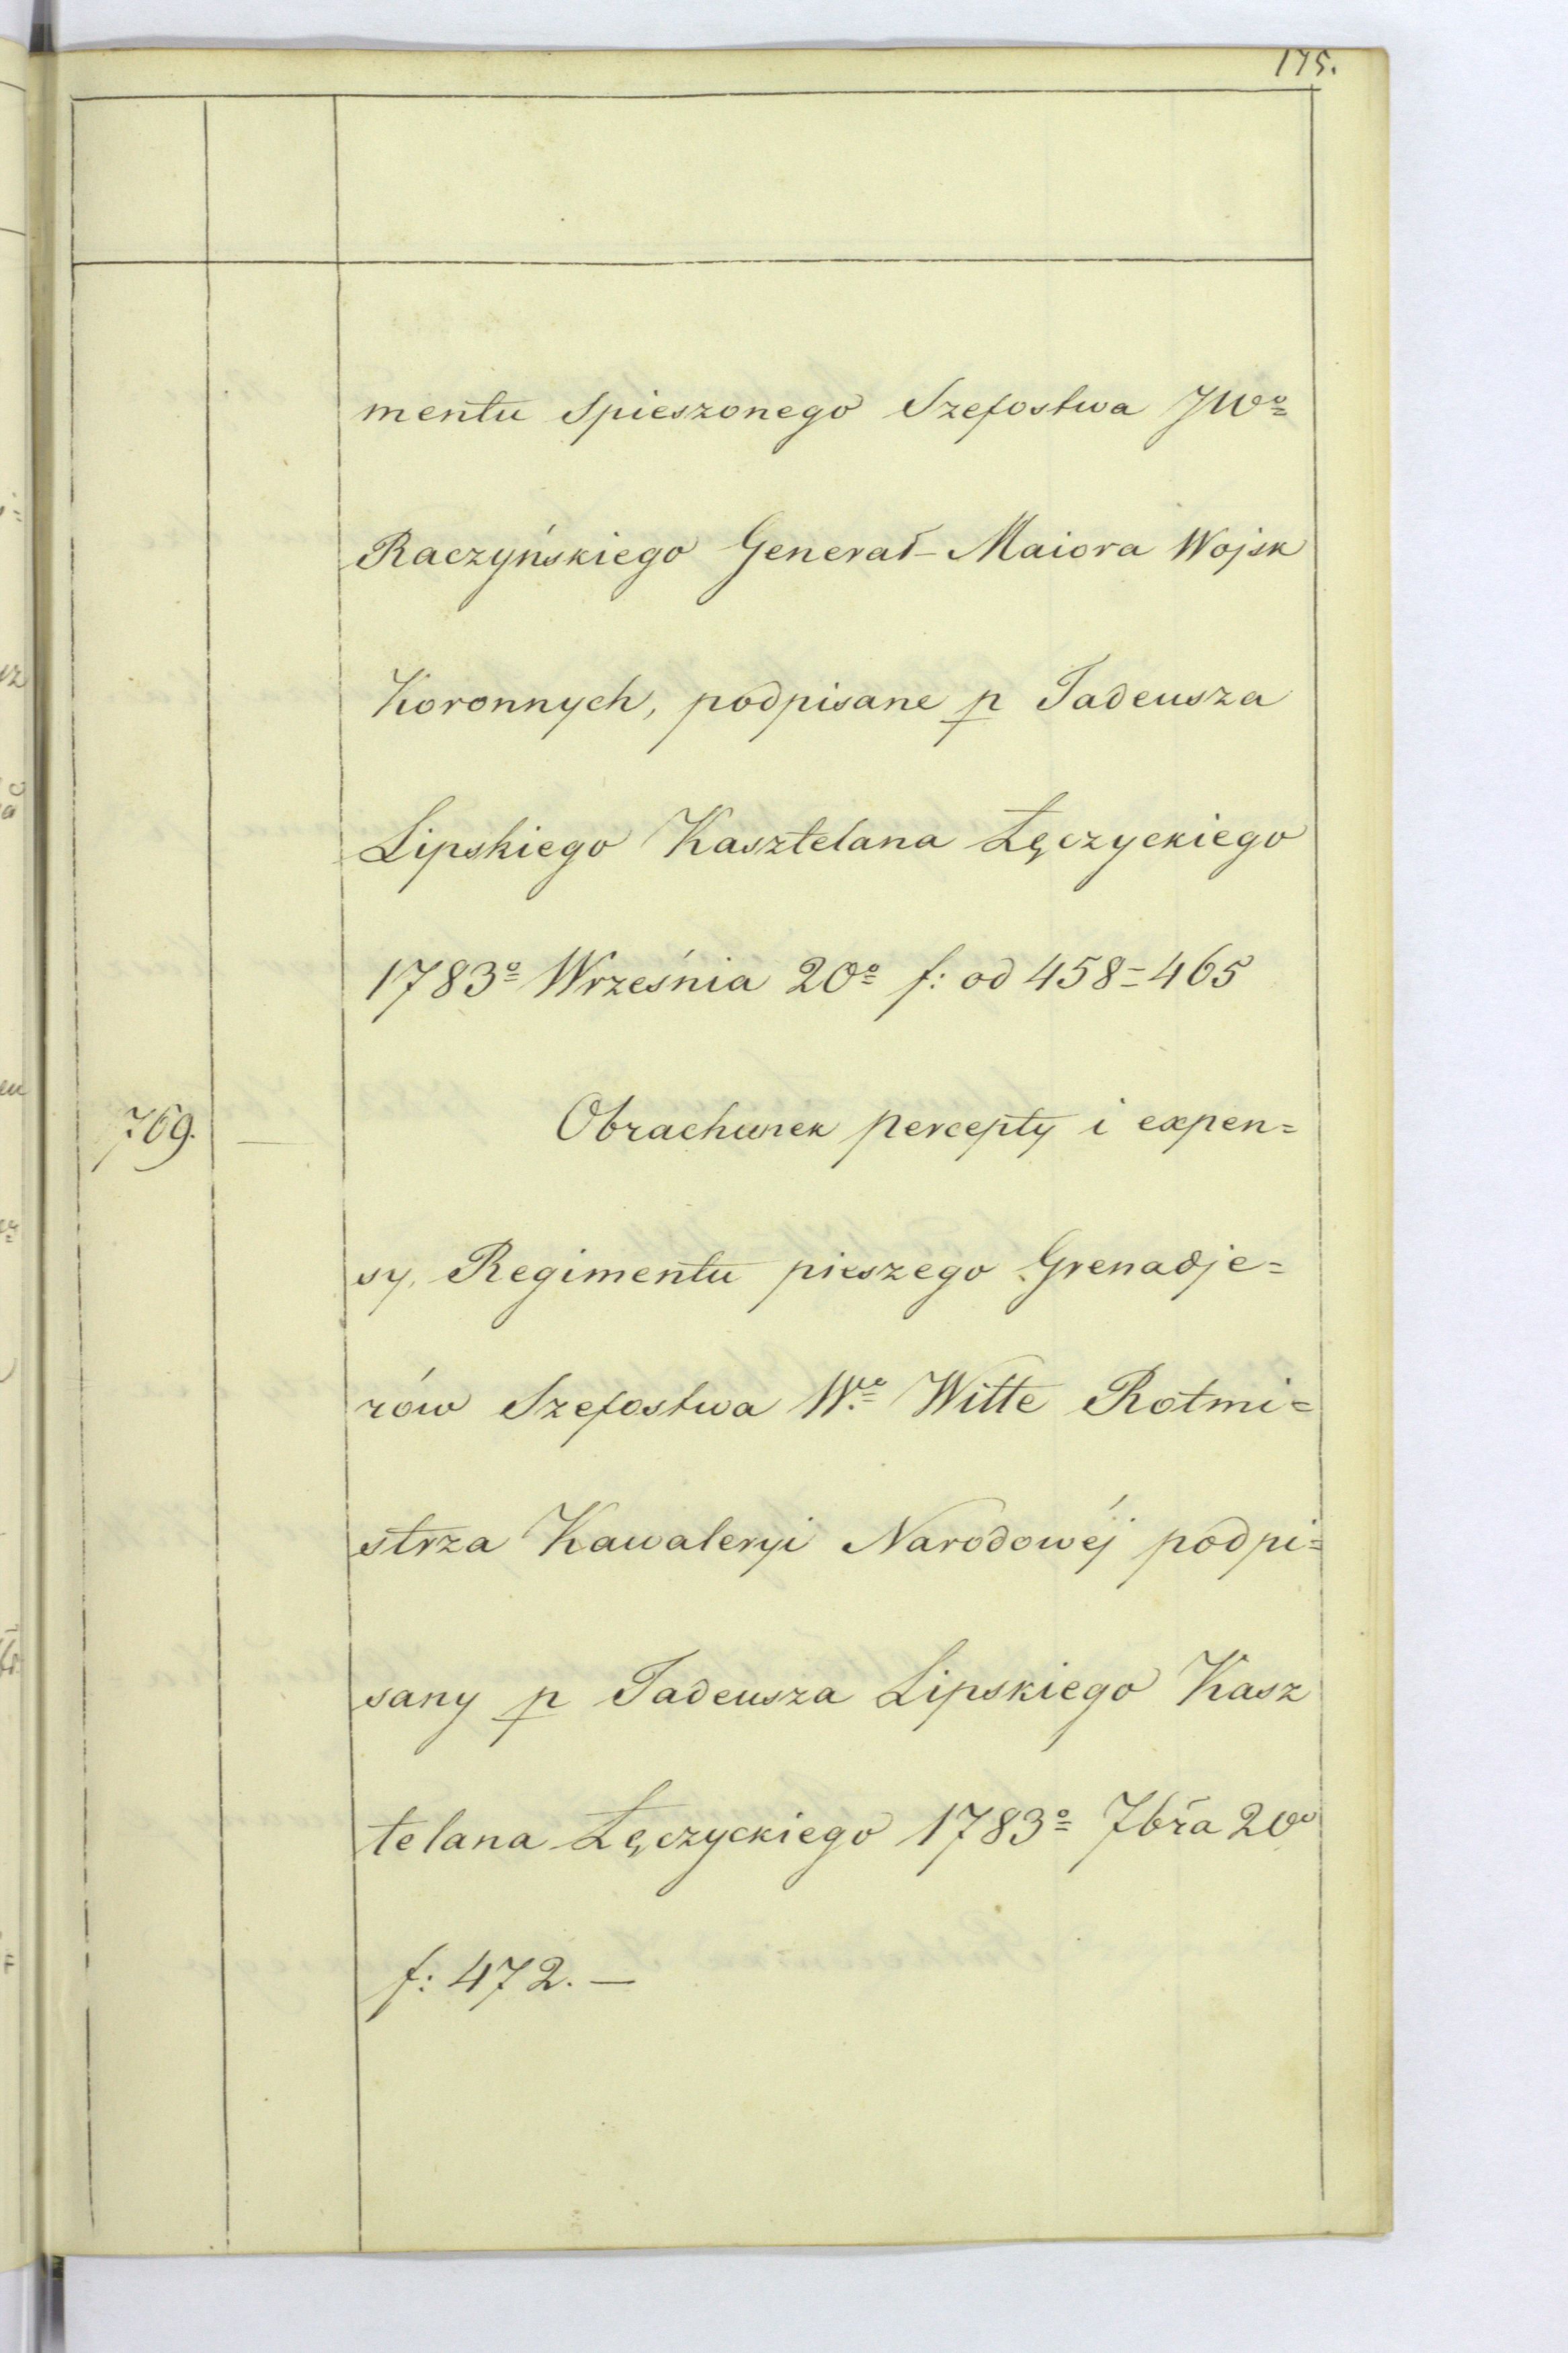 175.
mentu Spieszonego Szefostwa JWo
Raczyńskiego Generał-Maiora Wojsk
Koronnych, podpisane p Tadeusza
Lipskiego Kasztelana Łęczyckiego
1783o Września 20o f: od 458-465
769. — Obrachunek percepty i expen=
sy, Regimentu pieszego Grenadje=
rów Szefostwa W.o Witte Rotmi=
strza Kawaleryi Narodowéj podpi=
sany p Tadeusza Lipskiego Kasz
telana Łęczyckiego 1783o 7bra 20o
f: 472. —